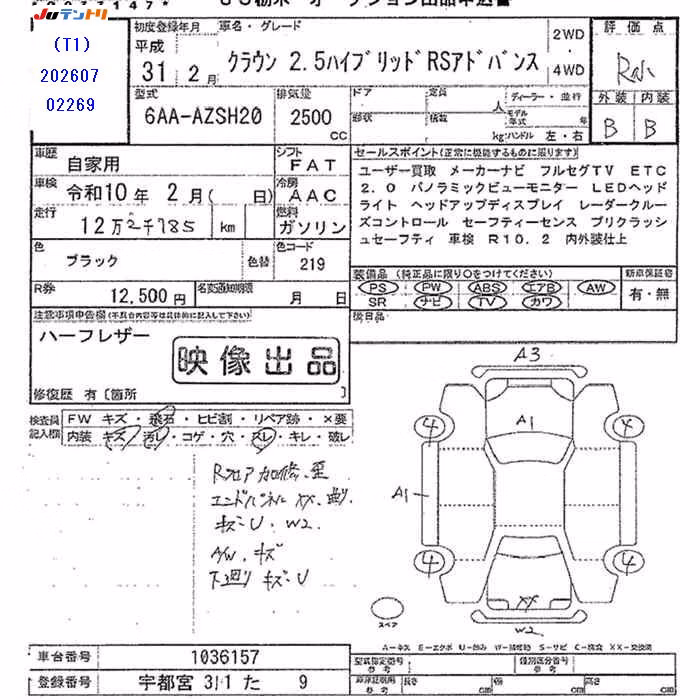 JUテントリ
(T1)
202607
02269
初度登録年月
平成
31 2月
車名・グレード
クラウン 2.5ハイブリッドRSアドバンス
2WD
4WD
評価点
外装 内装
B B
型式
6AA-AZSH20
排気量
2500
cc
ドア
形状
定員
人
積載
kg
ディーラー・並行
モデル年式
年
ハンドル 左・右
車歴
自家用
シフト
FAT
車検
令和10年 2月( 日)
冷房
AAC
走行
12万2千785 km
燃料
ガソリン
色
ブラック
色替
色コード
219
R券
12,500円
名変通知期限
月 日
セールスポイント(正常に機能するものに限ります)
ユーザー買取 メーカーナビ フルセグTV ETC
2.0 パノラミックビューモニター LEDヘッド
ライト ヘッドアップディスプレイ レーダークルー
ズコントロール セーフティーセンス プリクラッシ
ュセーフティ 車検 R10.2 内外装仕上
装備品 (純正品に限り○をつけてください)
PS PW ABS エアB AW
SR ナビ TV カワ
新車保証書
有・無
後日品
注意事項申告欄(不具合内容等は具体的に記入して下さい)
ハーフレザー
映像出品
修復歴 有〔箇所 〕
検査員
記入欄
FW キズ・飛石・ヒビ割・リペア跡・×要
内装 キズ・汚レ・コゲ・穴・スレ・キレ・破レ
Rフロア加修、歪
エンドパネル XX、曲り
キズ・U・W2
A/W、キズ
下廻りキズ・U
A3
A1
4 4
A1
4 4
XX
W2
スペア
A-キズ E-エクボ U-凹み W-補修跡 S-サビ C-腐食 XX-交換済
車台番号
1036157
登録番号
宇都宮 311 た 9
型式指定番号
参考
類別区分番号
参考
車庫証明用
参考
長さ cm
幅 cm
高さ cm